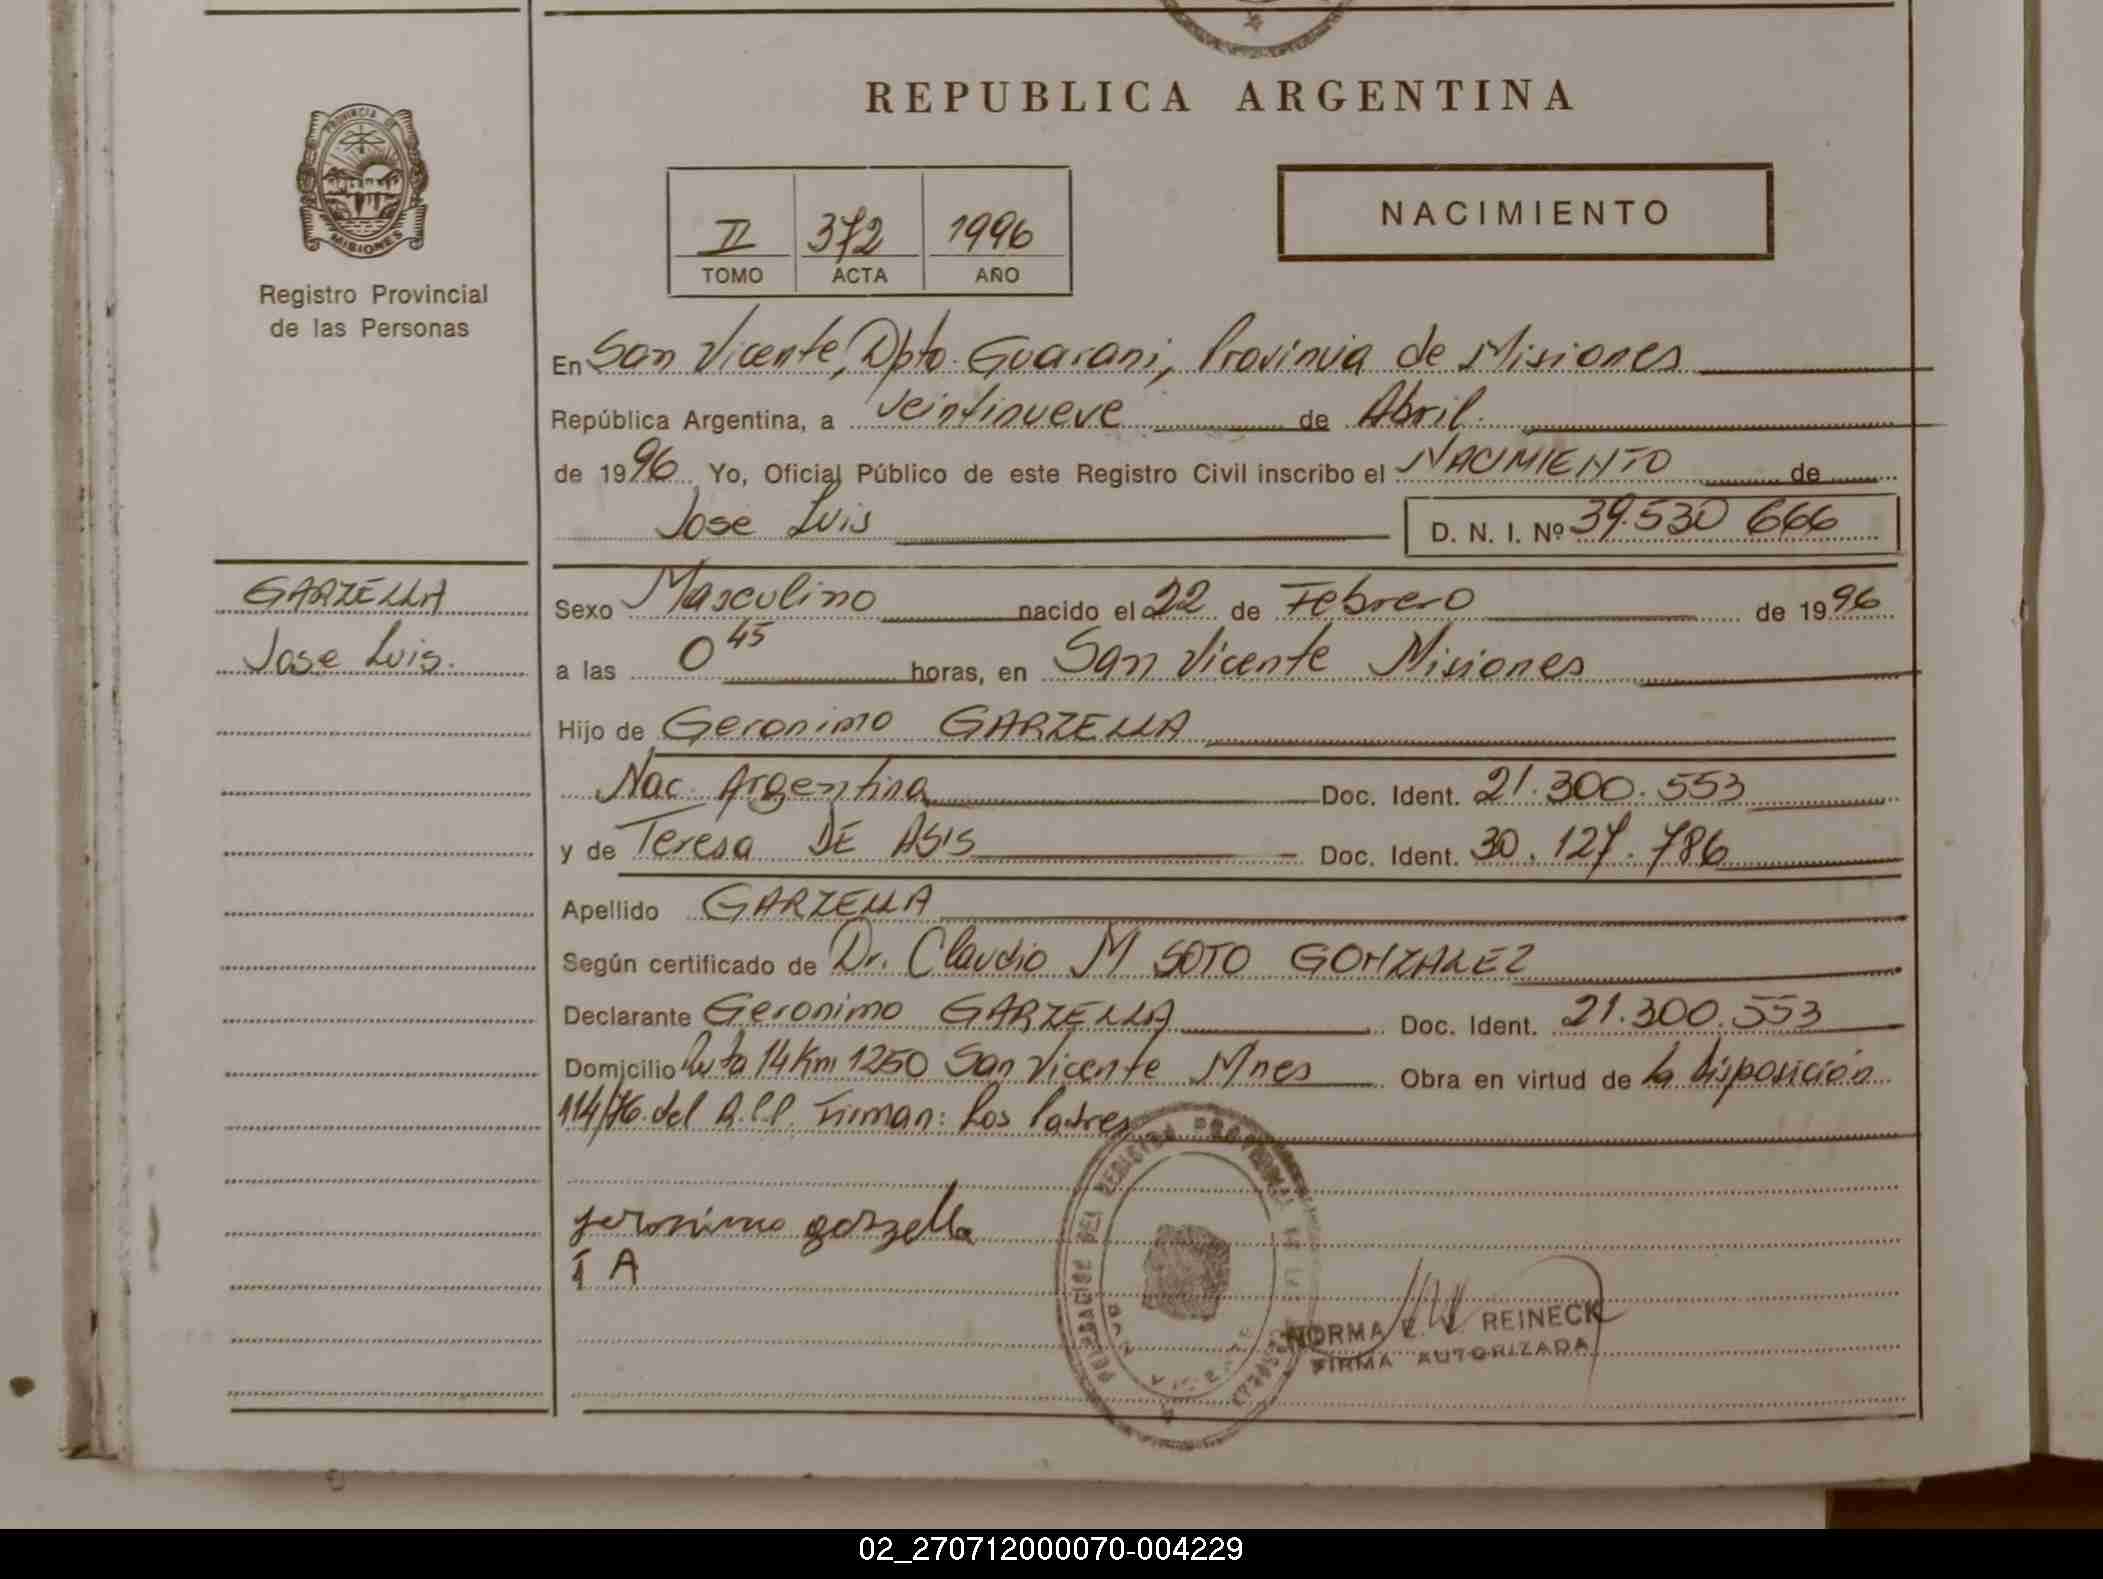 REPUBLICA ARGENTINA
PROVINCIA DE
MISIONES
Registro Provincial
de las Personas
II 372 1996
TOMO ACTA AÑO
NACIMIENTO
En San Vicente, Dpto. Guarani, Provincia de Misiones
República Argentina, a veintinueve de Abril
de 1996 Yo, Oficial Público de este Registro Civil inscribo el NACIMIENTO de
Jose Luis D. N. I. Nº 39.530 666
GARZELLA
Jose Luis.
Sexo Masculino nacido el 22 de Febrero de 1996
a las 0 45 horas, en San Vicente Misiones
Hijo de Geronimo GARZELLA
Nac. Argentina Doc. Ident. 21.300.553
y de Teresa DE ASIS Doc. Ident. 30.127.786
Apellido GARZELLA
Según certificado de Dr. Claudio M SOTO GONZALEZ
Declarante Geronimo GARZELLA Doc. Ident. 21.300.553
Domicilio Ruta 14 Km 1250 San Vicente Mnes Obra en virtud de la Disposición
114/76. del R.P.P. Firman: Los Padres
jeronimo garzella
T A
NORMA E. V. REINECK
FIRMA AUTORIZADA
02_270712000070-004229